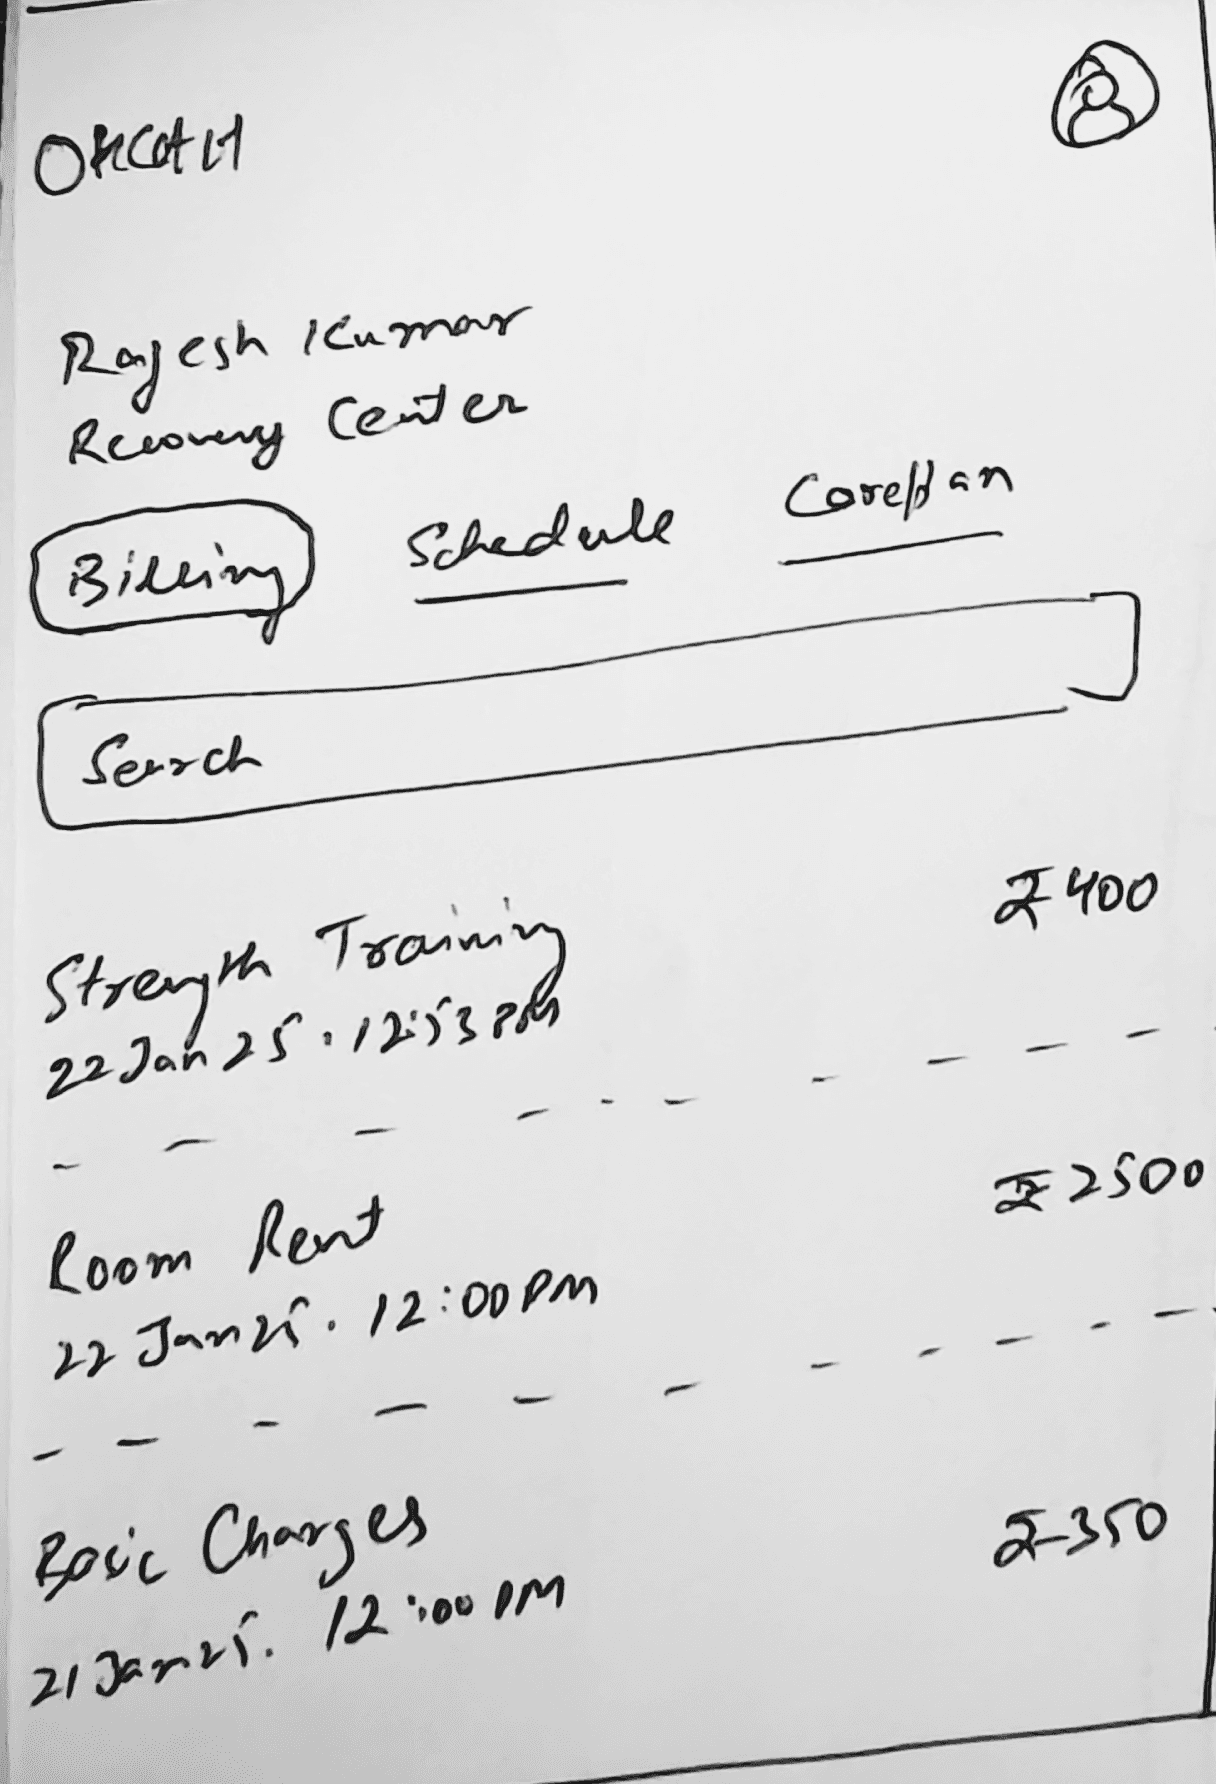 Rajesh Kumar
Recovery Center
Billing Schedule Careplan
Search
Strength Training ₹ 400
22 Jan 25 · 12:53 PM
Room Rent ₹ 2500
22 Jan 25 · 12:00 PM
Basic Charges ₹ 350
21 Jan 25 · 12:00 PM